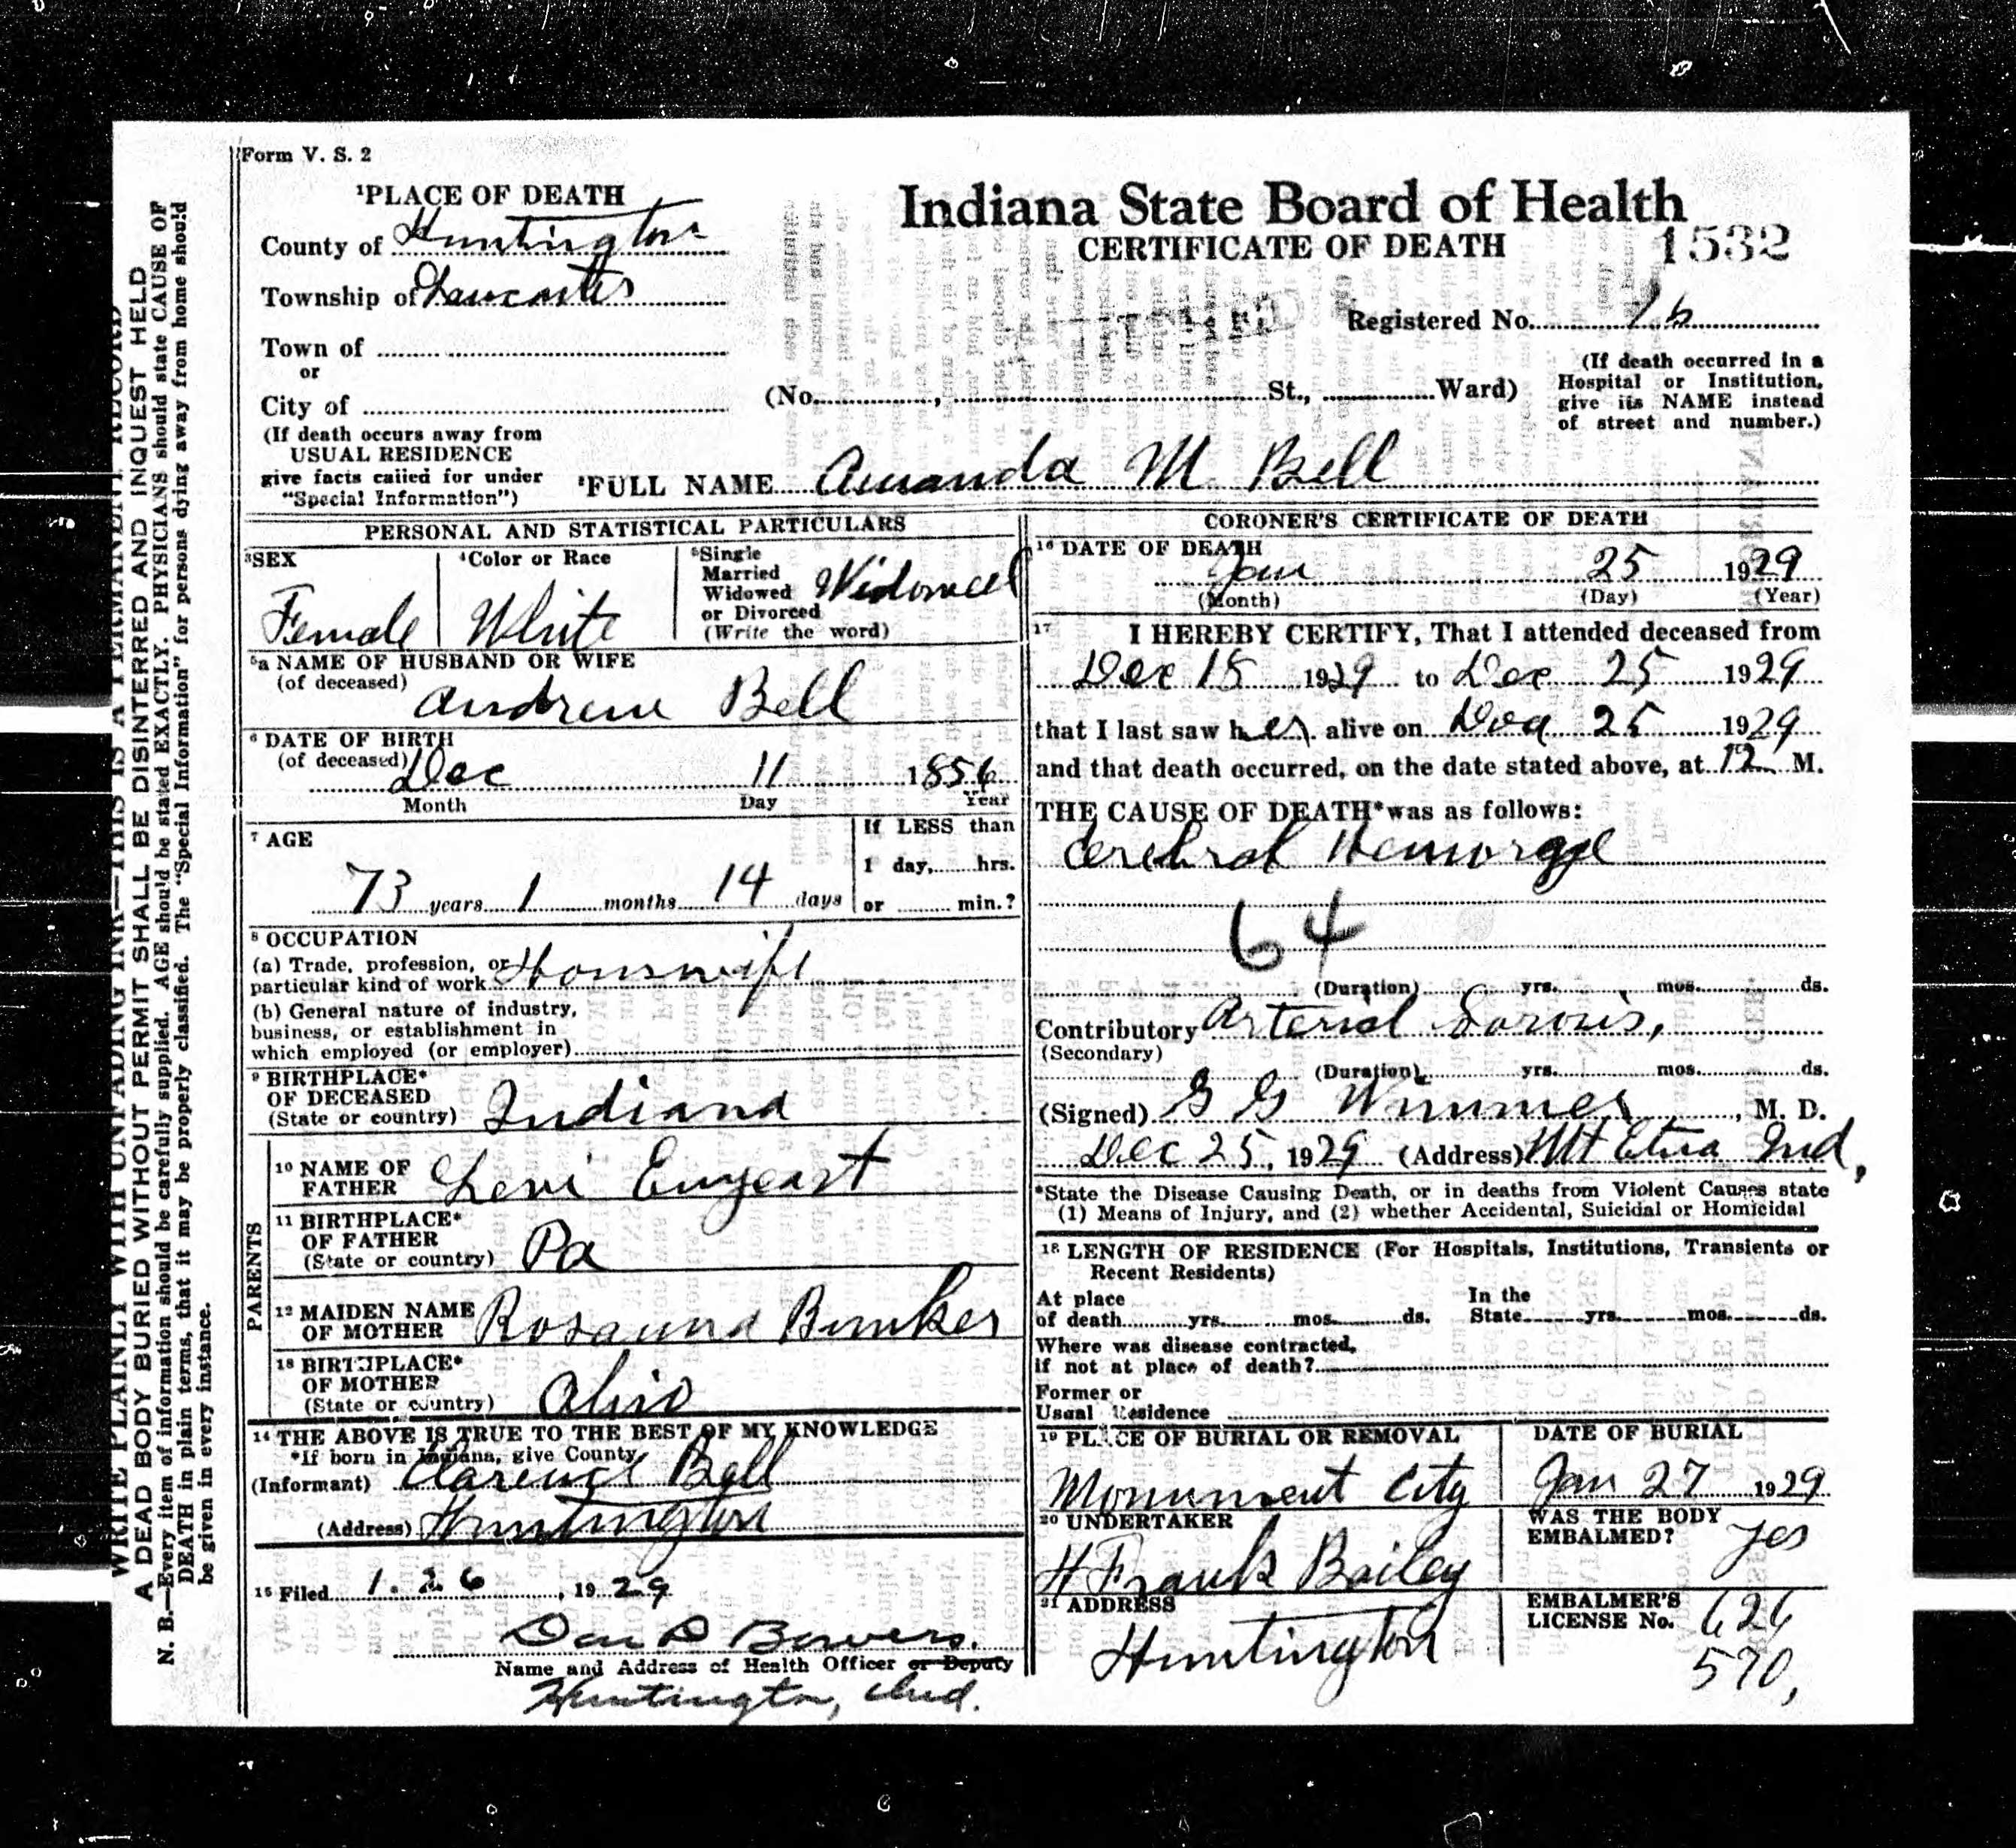 Form V. S. 2
1PLACE OF DEATH
County of Huntington
Township of Lancaster
Town of
or
City of
(If death occurs away from
USUAL RESIDENCE
give facts called for under
"Special Information")
Indiana State Board of Health
CERTIFICATE OF DEATH
1532
Registered No.
(No. , St., Ward)
(If death occurred in a
Hospital or Institution,
give its NAME instead
of street and number.)
FULL NAME Amanda M Bell
PERSONAL AND STATISTICAL PARTICULARS
3SEX
Female
4Color or Race
White
5Single
Married
Widowed
or Divorced
(Write the word)
Widowed
5a NAME OF HUSBAND OR WIFE
(of deceased)
Andrew Bell
6 DATE OF BIRTH
(of deceased)
Dec 11 1856
Month Day Year
7 AGE
73 years 1 months 14 days
If LESS than
1 day, hrs.
or min.?
8 OCCUPATION
(a) Trade, profession, or
particular kind of work Houswife
(b) General nature of industry,
business, or establishment in
which employed (or employer)
9 BIRTHPLACE*
OF DECEASED
(State or country) Indiana
PARENTS
10 NAME OF
FATHER Levi Emyeart
11 BIRTHPLACE*
OF FATHER
(State or country) Pa
12 MAIDEN NAME
OF MOTHER Rosanna Bunker
13 BIRTHPLACE*
OF MOTHER
(State or country) Ohio
14 THE ABOVE IS TRUE TO THE BEST OF MY KNOWLEDGE
*If born in Indiana, give County
(Informant) Clarence Bell
(Address) Huntington
15 Filed 1. 26, 1929
Dan D Bowers.
Name and Address of Health Officer or Deputy
Huntington, Ind.
CORONER'S CERTIFICATE OF DEATH
16 DATE OF DEATH
Jan 25 1929
(Month) (Day) (Year)
17 I HEREBY CERTIFY, That I attended deceased from
Dec 18 1929 to Dec 25 1929
that I last saw her alive on 25 1929
and that death occurred, on the date stated above, at 12 M.
THE CAUSE OF DEATH* was as follows:
Cerebral Hemorage
64
(Duration) yrs. mos. ds.
Contributory Arterial
(Secondary)
(Duration) yrs. mos. ds.
(Signed) G G Wimmer, M. D.
Dec 25, 1929 (Address) Mt Etna Ind,
*State the Disease Causing Death, or in deaths from Violent Causes state
(1) Means of Injury, and (2) whether Accidental, Suicidal or Homicidal
18 LENGTH OF RESIDENCE (For Hospitals, Institutions, Transients or
Recent Residents)
At place
of death yrs. mos. ds.
In the
State yrs. mos. ds.
Where was disease contracted,
if not at place of death?
Former or
Usual Residence
19 PLACE OF BURIAL OR REMOVAL
Monument City
DATE OF BURIAL
Jan 27 1929
20 UNDERTAKER
H Frank Bailey
WAS THE BODY
EMBALMED? yes
21 ADDRESS
Huntington
EMBALMER'S
LICENSE No. 626
570,
WRITE PLAINLY WITH UNFADING INK—THIS IS A PERMANENT RECORD
A DEAD BODY BURIED WITHOUT PERMIT SHALL BE DISINTERRED AND INQUEST HELD
N. B.—Every item of information should be carefully supplied. AGE should be stated EXACTLY. PHYSICIANS should state CAUSE OF
DEATH in plain terms, that it may be properly classified. The "Special Information" for persons dying away from home should
be given in every instance.